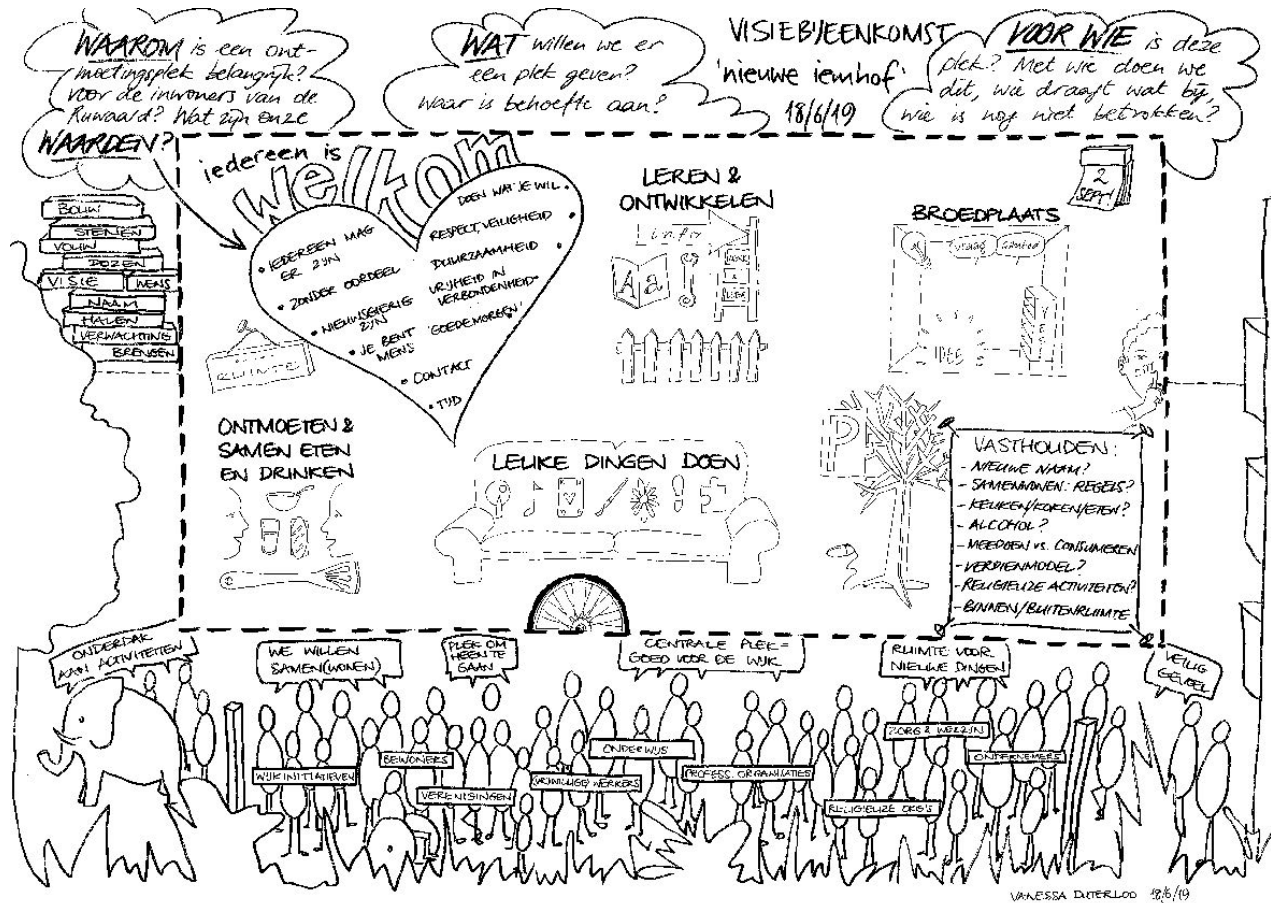 WAAROM is een ont-
moetingsplek belangrijk?
voor de inwoners van de
Ruwaard? Wat zijn onze
WAARDEN?
WAT willen we er
een plek geven?
Waar is behoefte aan?
VISIEBIJEENKOMST
'nieuwe iemhof'
18/6/19
VOOR WIE is deze
plek? Met wie doen we
dit, wie draagt wat bij,
wie is nog niet betrokken?
iedereen is
welkom
• IEDEREEN MAG
ER ZIJN
• ZONDER OORDEEL
• NIEUWSGIERIG
ZIJN
• JE BENT
MENS
• CONTACT
• TIJD
DOEN WAT JE WIL •
RESPECT, VEILIGHEID •
DUURZAAMHEID •
VRIJHEID IN
VERBONDENHEID •
'GOEDEMORGEN' •
BOUW
STENEN
VOUW
DOZEN
VISIE
WENS
NAAM
HALEN
VERWACHTING
BRENGEN
RUIMTE
LEREN &
ONTWIKKELEN
info
Aa
BROEDPLAATS
vraag
aanbod
IDEE
2
SEPT!
ONTMOETEN &
SAMEN ETEN
EN DRINKEN
LEUKE DINGEN DOEN
P
VASTHOUDEN:
- NIEUWE NAAM?
- SAMENWONEN: REGELS?
- KEUKEN/KOKEN/ETEN?
- ALCOHOL?
- MEEDOEN VS. CONSUMEREN
- VERDIENMODEL?
- RELIGIEUZE ACTIVITEITEN?
- BINNEN/BUITENRUIMTE
ONDERDAK
AAN ACTIVITEITEN
WE WILLEN
SAMEN(WONEN)
PLEK OM
HEEN TE
GAAN
CENTRALE PLEK=
GOED VOOR DE WIJK
RUIMTE VOOR
NIEUWE DINGEN
VEILIG
GEVOEL
WIJKINITIATIEVEN
BEWONERS
VERENIGINGEN
VRIJWILLIGE WERKERS
ONDERWIJS
PROFESS. ORGANISATIES
ZORG & WELZIJN
RELIGIEUZE ORG'S
ONDERNEMERS
VANESSA DUTERLOO 18/6/19